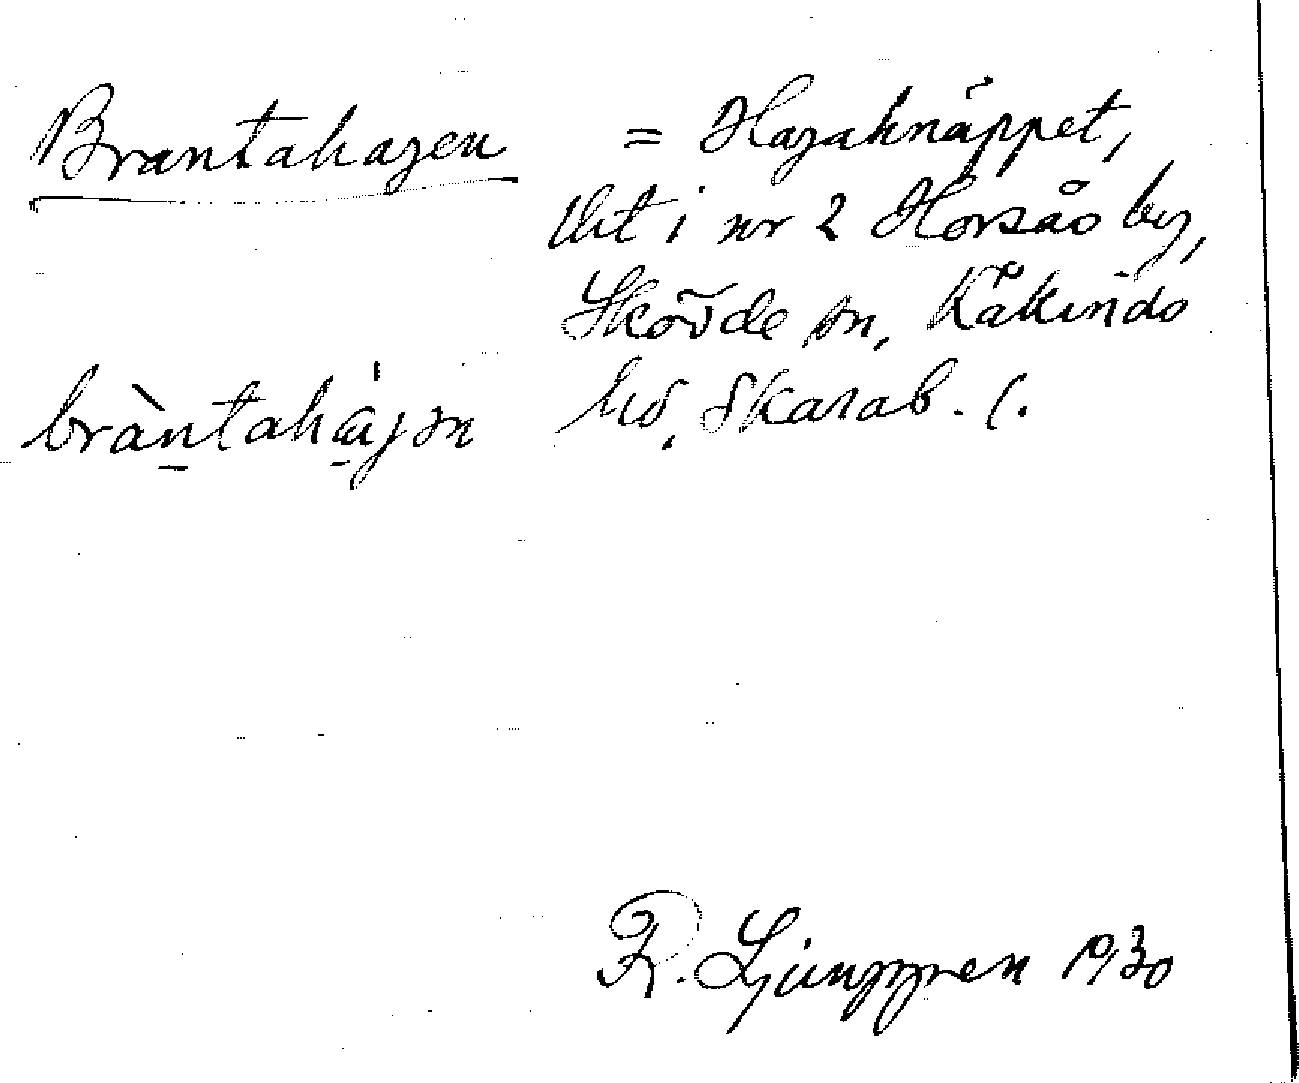 Brantahagen = Hagaknäppet,
lht i nr 2 Horsås by,
Skövde sn, Kåkinds
hd, Skarab. l.
bràntahágən
R. Ljunggren 1930